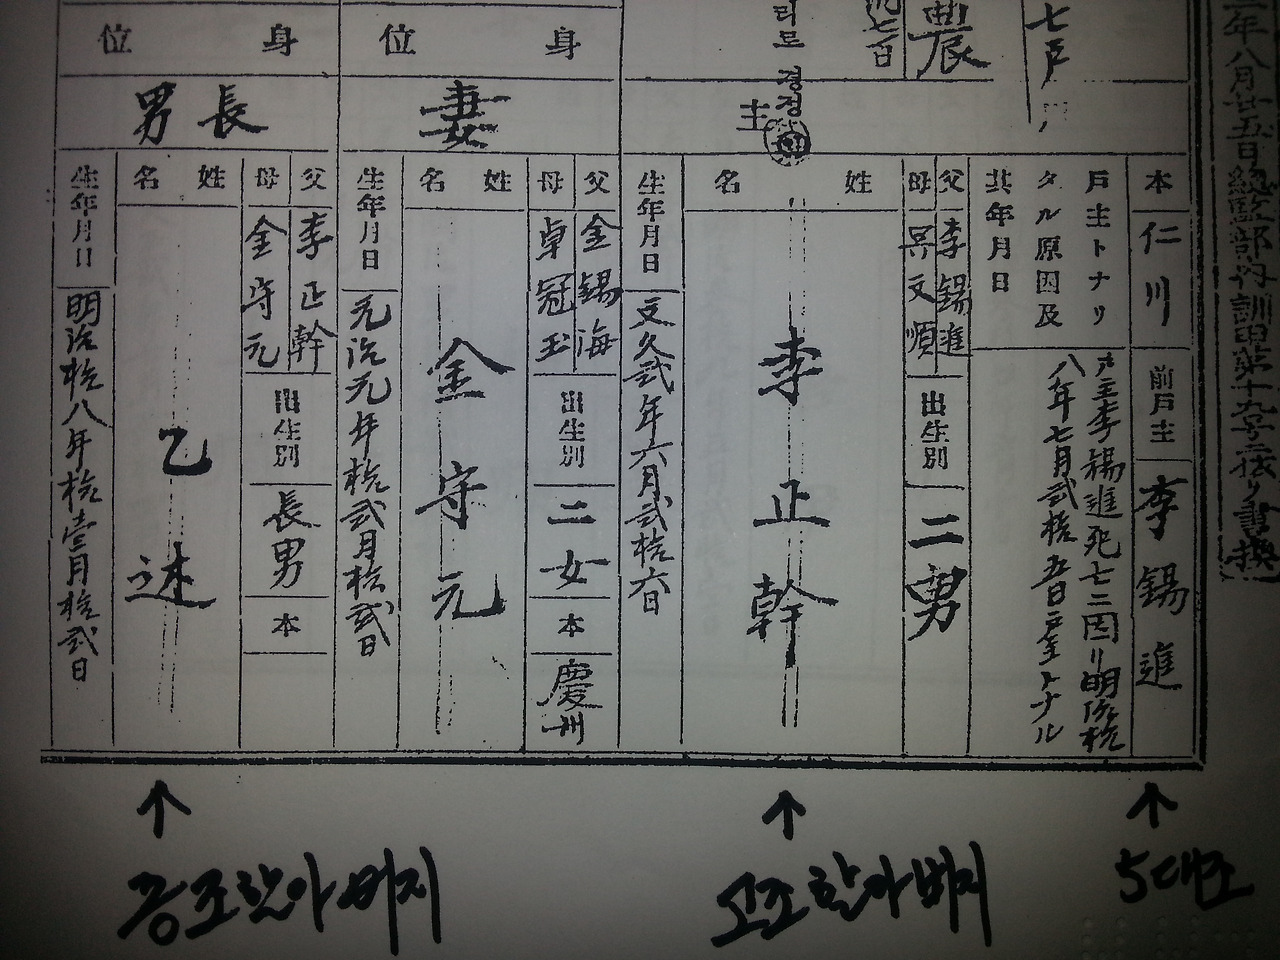 三年八月廿五日総監部内訓田第十九号ニ依リ書換
七戸
農
七百
리로 경정
主
身位
妻
身位
長男
本
仁川
前戸主
李錫進
戸主トナリ
タル原因及
其年月日
戸主李錫進死亡ニ因リ明治拾
八年七月弐拾五日戸主トナル
父
李錫進
母
文順
出生別
二男
姓名
李正幹
生年月日
文久弐年六月弐拾六日
父
金錫海
母
卓冠玉
出生別
二女
本
慶州
姓名
金守元
生年月日
元治元年拾弐月拾弐日
父
李正幹
母
金守元
出生別
長男
本
姓名
乙述
生年月日
明治拾八年拾壹月拾弐日
↑
증조할아버지
↑
고조할아버지
↑
5대조